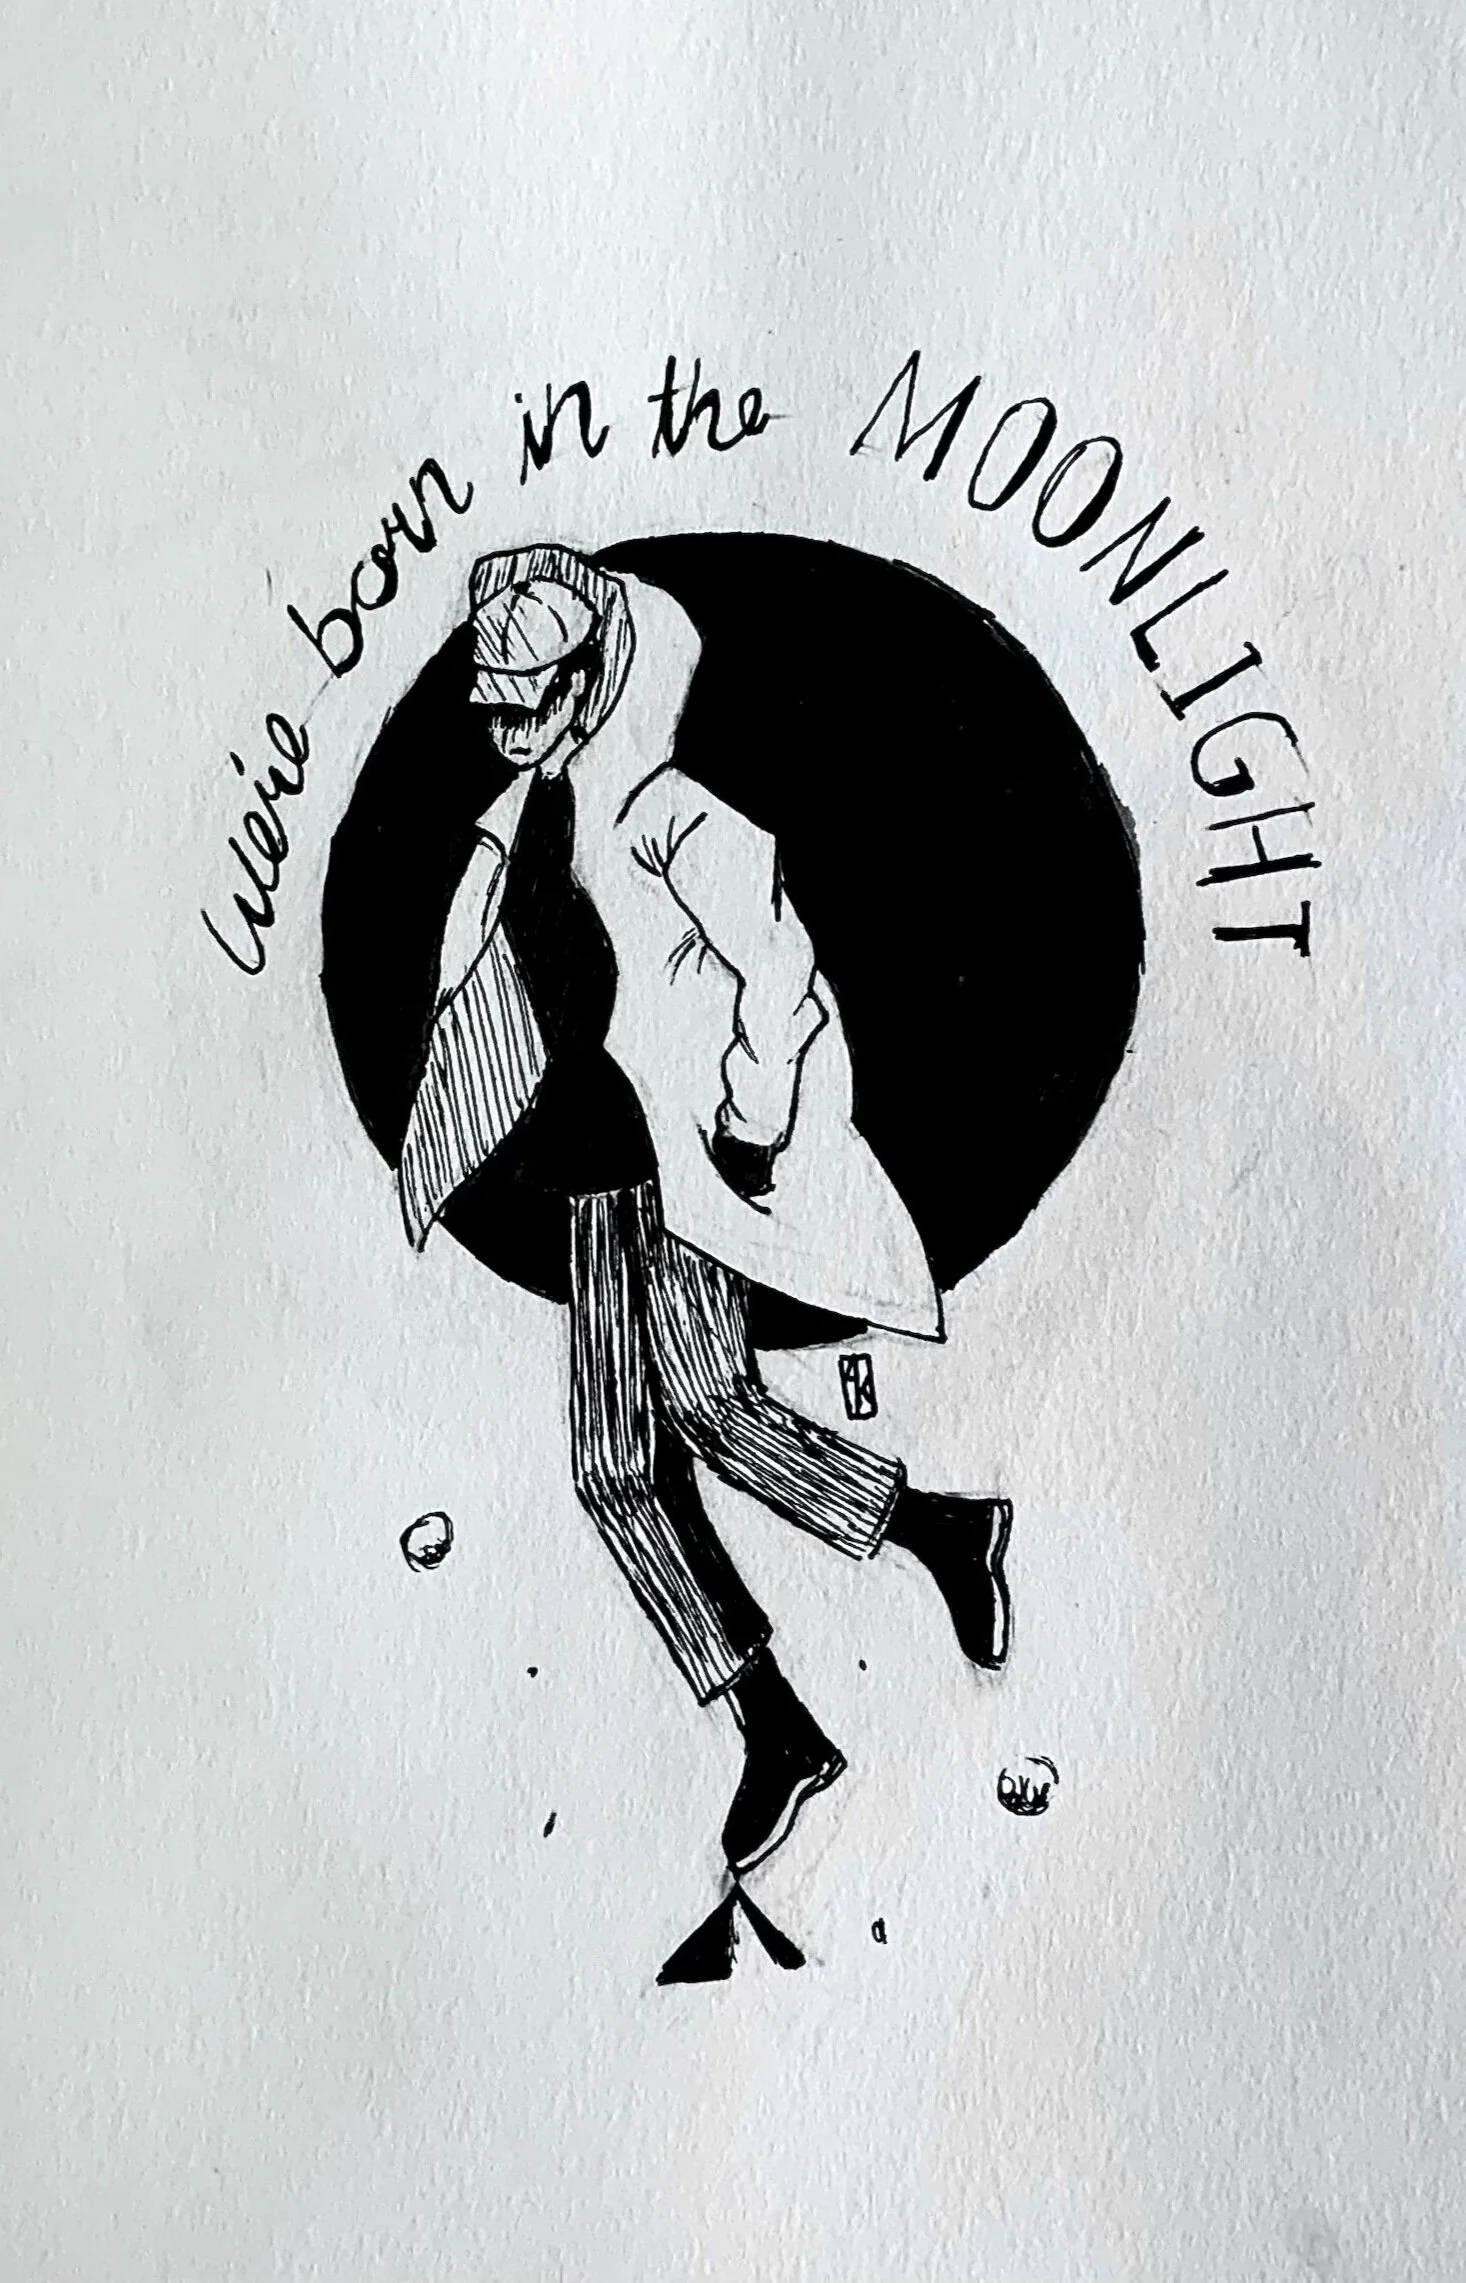 We're born in the MOONLIGHT